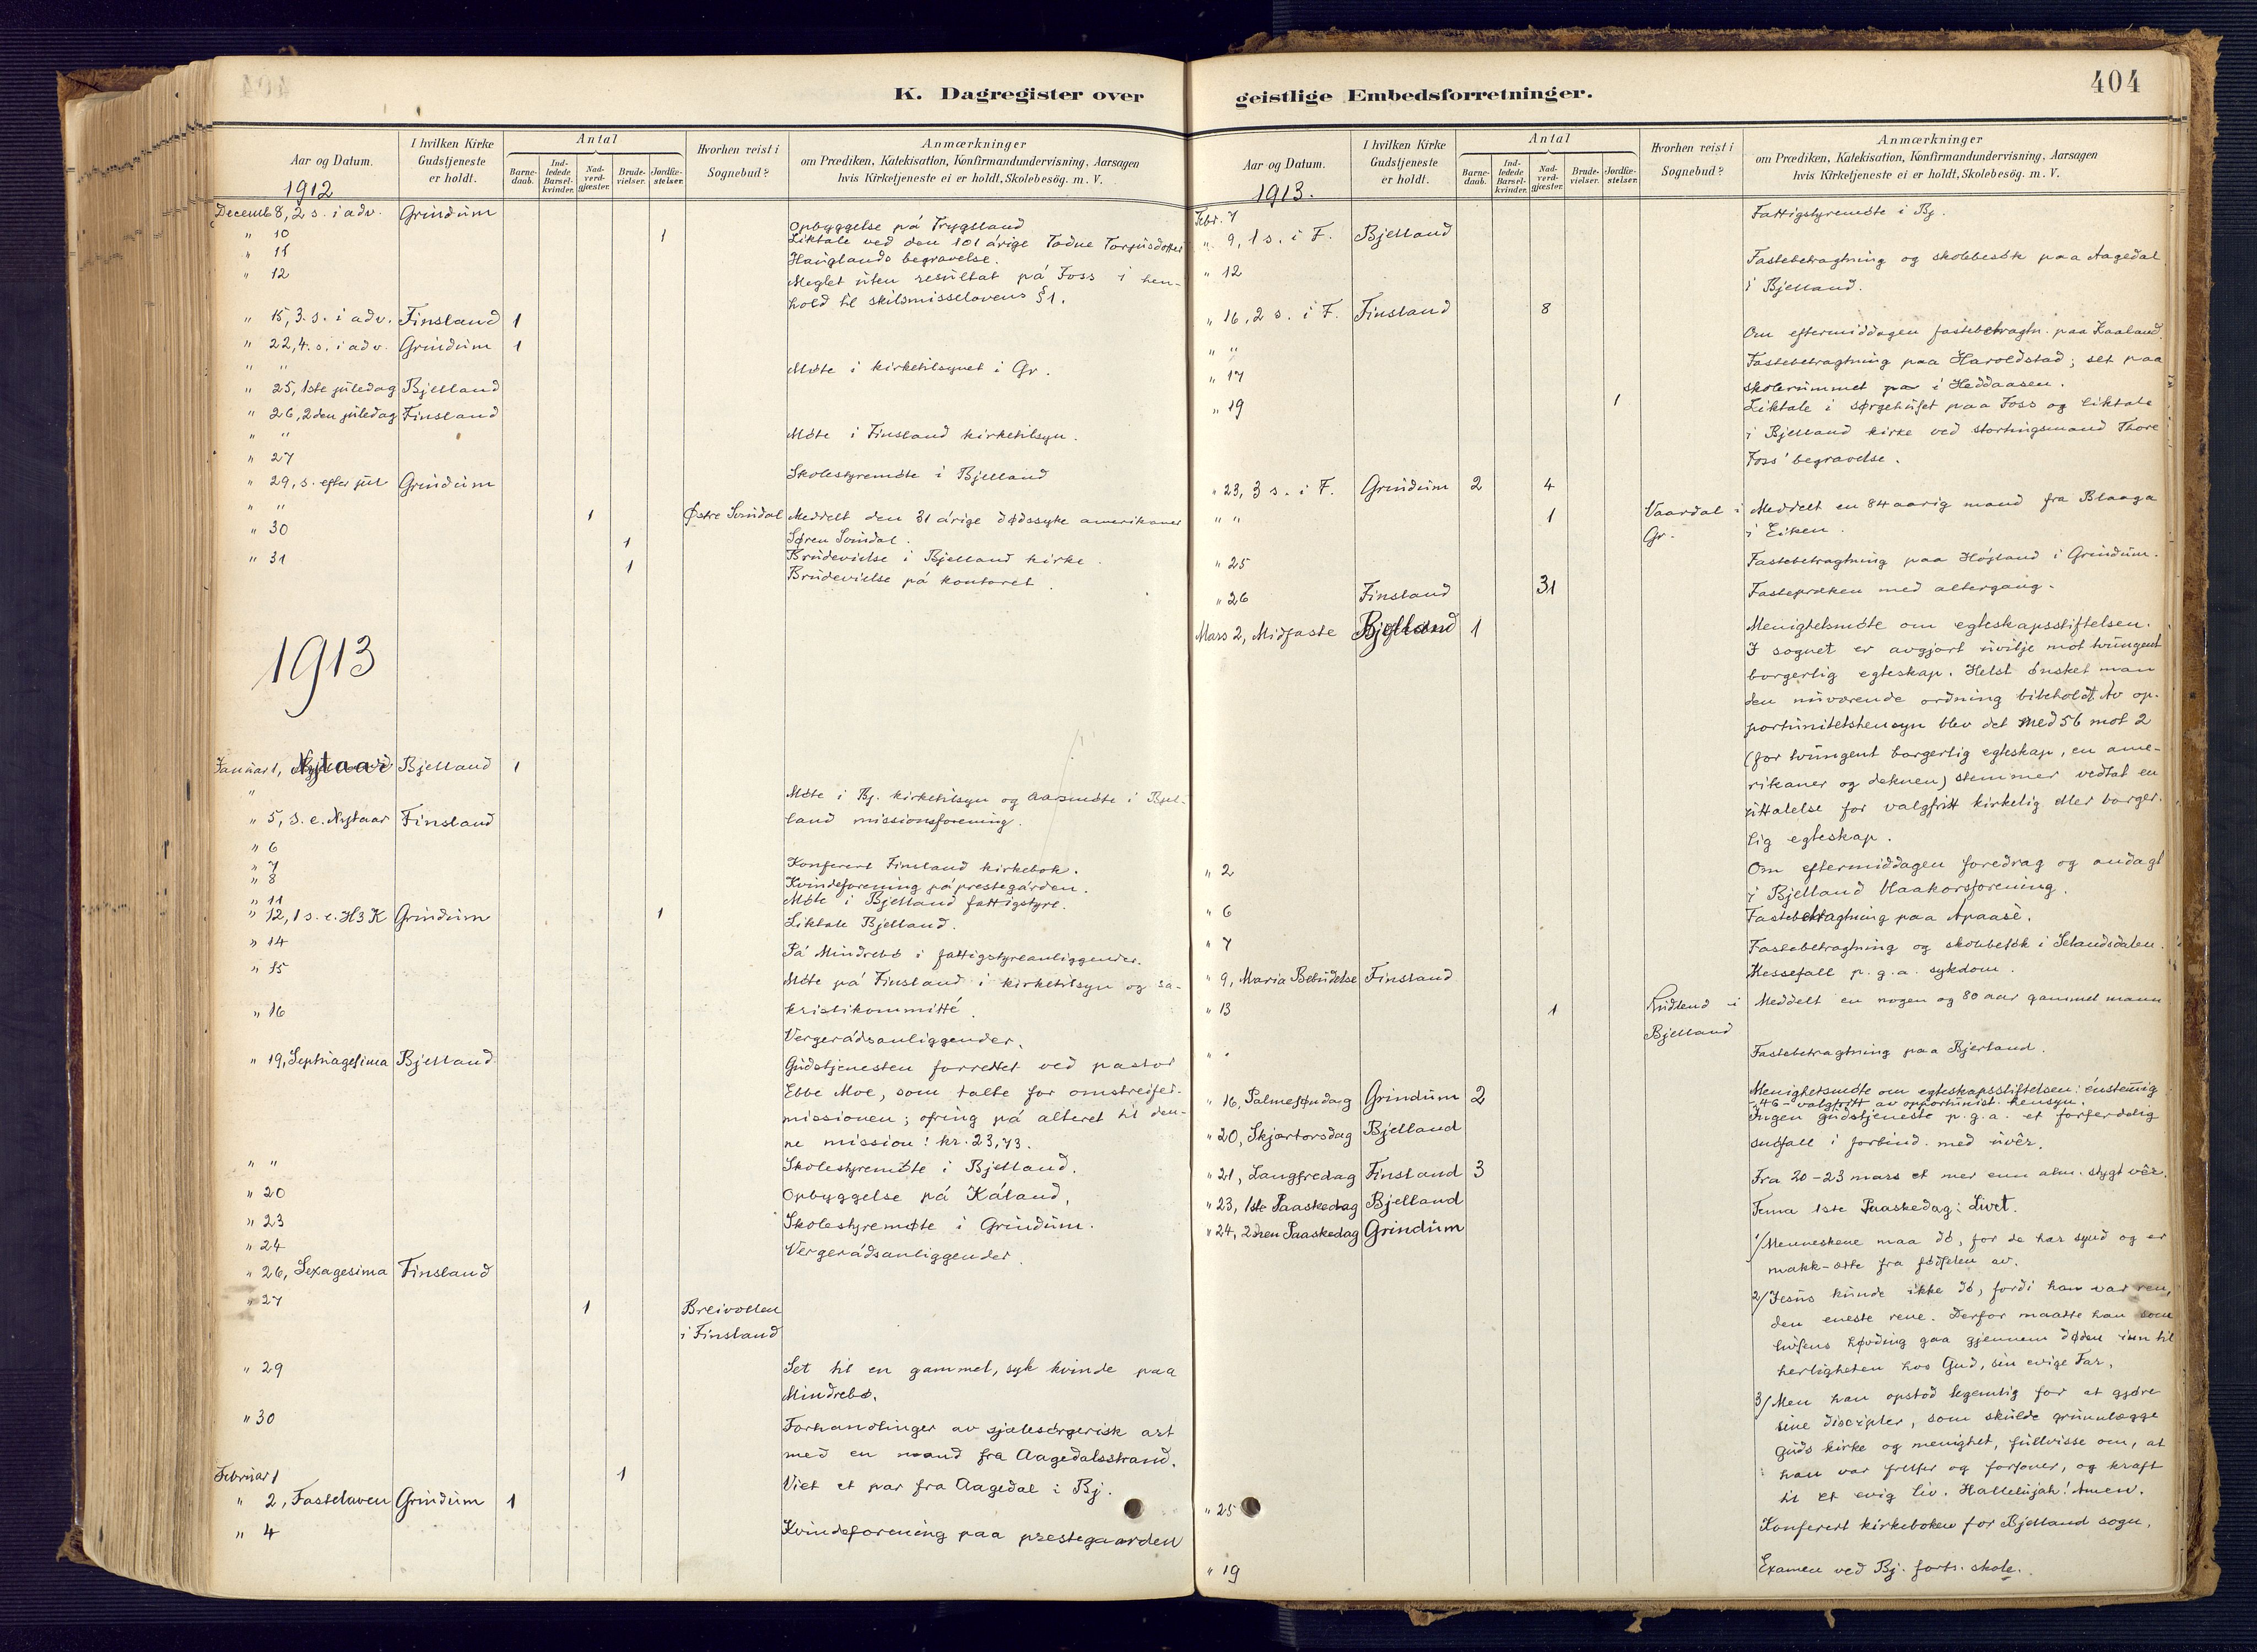 K. Dagregister over
Aar og Datum.
1912
I hvilken Kirke Gudstjeneste er holdt.
Antal
Barnedaab.
Indledede Barselkvinder.
Nadverdgjæster.
Brudevielser.
Jordfæstelser.
Hvorhen reist i Sognebud?
Anmærkninger
om Prædiken, Katekisation, Konfirmandundervisning, Aarsagen
hvis Kirketjeneste ei er holdt, Skolebesög. m. V.
Decemb 8, 2 s. i adv. Grindum
" 10 Opbyggelse på Trygsland
" 11 1 Liktale ved den 101 årige Tadne Torjusdotter
Hauglands begravelse.
" 12 Meglet uten resultat på Foss i hen-
hold til skilsmisselovens § 1.
" 15, 3. s. i adv. Finsland 1
" 22, 4. s. i adv. Grindum 1
" " Møte i kirketilsynet i Gr.
" 25, 1ste juledag Bjelland
" 26, 2den juledag Finsland
" " Møte i Finsland kirketilsyn.
" 27 Skolestyremøte i Bjelland
" 29, s. efter jul Grindum
" " 1 Østre Svindal Meddelt den 31 årige dødssyke amerikaner
Søren Svindal.
" 30 1 Brudevielse i Bjelland kirke.
" 31 1 Brudevielse på kontoret.
1913
Januar 1, Nytaar Bjelland 1
" Møte i Bj. kirketilsyn og aarsmøte i Bjel-
land missionsforening.
" 5, s. e. Nytaar Finsland
" 6 Konferert Finsland kirkebok.
" 7 Kvindeforening på prestegården.
" 8 Møte i Bjelland fattigstyre.
" 11 1 Liktale Bjelland.
" 12, 1 s. e. H3K Grindum
" 14 På Mindrebø i fattigstyreanliggender.
" 15 Møte på Finsland i kirketilsyn og sa-
kristikommitté.
" 16 Vergerådsanliggender.
" 19, Septuagesima Bjelland Gudstjenesten forrettet ved pastor
Ebbe Moe, som talte for omstreifer-
missionen; ofring på alteret til den-
ne mission: kr. 23,73.
" " Skolestyremøte i Bjelland.
" 20 Opbyggelse på Kåland.
" 23 Skolestyremøte i Grindum.
" 24 Vergerådsanliggender.
" 26, Sexagesima Finsland
" 27 1 Breivollen
i Finsland
" 29 Set til en gammel, syk kvinde paa
Mindrebø.
" 30 Forhandlinger av sjælesørgerisk art
med en mand fra Aagedalsstrand.
Februar 1 1 Viet et par fra Aagedal i Bj.
" 2, Fastelaven Grindum 1
" 4 Kvindeforening paa prestegaarden
geistlige Embedsforretninger.
404
Aar og Datum.
1913.
I hvilken Kirke Gudstjeneste er holdt.
Antal
Barnedaab.
Indledede Barselkvinder.
Nadverdgjæster.
Brudevielser.
Jordfæstelser.
Hvorhen reist i Sognebud?
Anmærkninger
om Prædiken, Katekisation, Konfirmandundervisning, Aarsagen
hvis Kirketjeneste ei er holdt, Skolebesög. m. V.
Febr. 7 Fattigstyremøte i Bj.
" 9, 1 s. i F. Bjelland
" 12 Fastebetragtning og skolebesøk paa Aagedal
i Bjelland.
" 16, 2 s. i F. Finsland 8
" " Om eftermiddagen fastebetragtn. paa Kaaland.
" 17 Fastebetragtning paa Haroldstad; set paa
skolerummet i Heddaasen.
" 19 1 Liktale i sørgehuset paa Foss og liktale
i Bjelland kirke ved stortingsmand Thore
Foss' begravelse.
" 23, 3 s. i F. Grindum 2 4
" " 1 Vaardal i Gr. Meddelt en 84 aarig mand fra Blaaga
i Eiken.
" 25 Fastebetragtning paa Høiland i Grindum.
" 26 Finsland 31 Fastepræken med altergang.
Mars 2, Midfaste Bjelland 1 Menighetsmøte om egteskapsstiftelsen.
I sognet er avgjort uvilje mot tvungent
borgerlig egteskap. Helst ønsket man
den nuværende ordning bibeholdt. Av op-
portunitetshensyn blev det med 56 mot 2
(for tvungent borgerlig egteskap, en ame-
rikaner og deknen) stemmer vedtat en
uttalelse for valgfritt kirkelig eller borger-
lig egteskap.
" 2 Om eftermiddagen foredrag og andagt
i Bjelland blaakorsforening.
" 6 Fastebetragtning paa Apaase.
" 7 Fastebetragtning og skolebesøk i Selandsdalen.
" 9, Maria Bebudelse Finsland Messefall p. g. a. sykdom.
" 13 1 i Bjelland Meddelt en nogen og 80 aar gammel mann
" " Fastebetragtning paa Bjerland.
" 16, Palmesøndag Grindum 2 Menighetsmøte om egteskapsstiftelsen: énstemig
- 46 - valgfritt av opportunist. hensyn.
" 20, Skjærtorsdag Bjelland Ingen gudstjeneste p. g. a. et forferdelig
snøfall i forbind. med uvêr.
" 21, Langfredag Finsland 3 Fra 20-23 mars et mer enn alm. stygt vêr.
" 23, 1ste Paaskedag Bjelland Tema 1ste Paaskedag: Livet.
" 24, 2dren Paaskedag Grindum 1/ Menneskene maa dø, for de har synd og er
makk-ætte fra fødselen av.
2/ Jesus kunde ikke dø, fordi han var ren,
den eneste rene. Derfor maatte han som
livsens høvding gaa gjennem døden inn til
herligheten hos Gud, sin evige Far.
3/ Men han opstod legemlig for at gjøre
sine disciple, som skulde grunnlægge
Guds kirke og menighet, fullvisse om, at
han var frelser og forsoner, og kraft
til et evig liv. Hallelujah! Amen.
" 25 Konferert kirkeboken for Bjelland sogn.
" 19 Examen ved Bj. forts. skole.